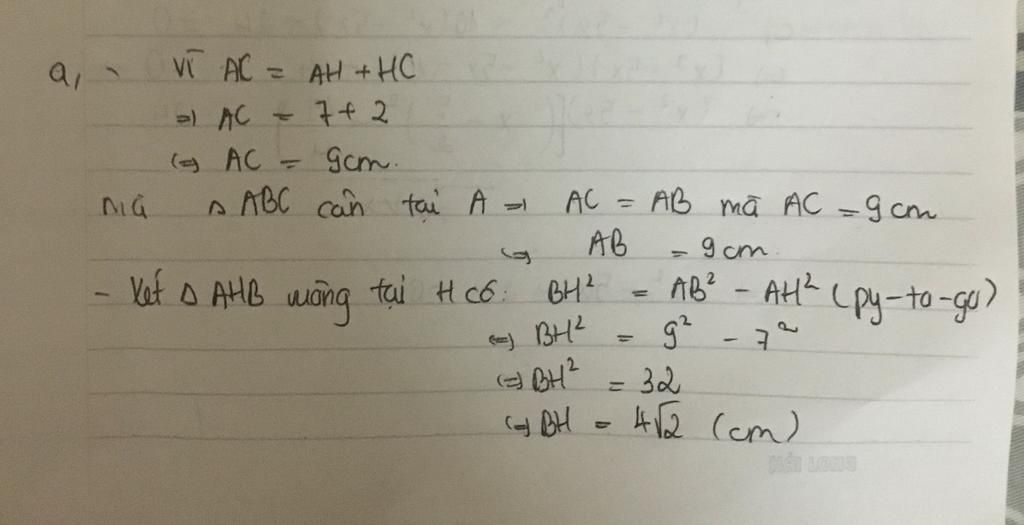 a, - Vì AC = AH + HC
=> AC = 7 + 2
<=> AC = 9cm.
mà Δ ABC cân tại A => AC = AB mà AC = 9 cm
<=> AB = 9 cm.
- Xét Δ AHB vuông tại H có: BH² = AB² - AH² (py-ta-go)
<=> BH² = 9² - 7²
<=> BH² = 32
<=> BH = 4√2 (cm)
HẢI LONG